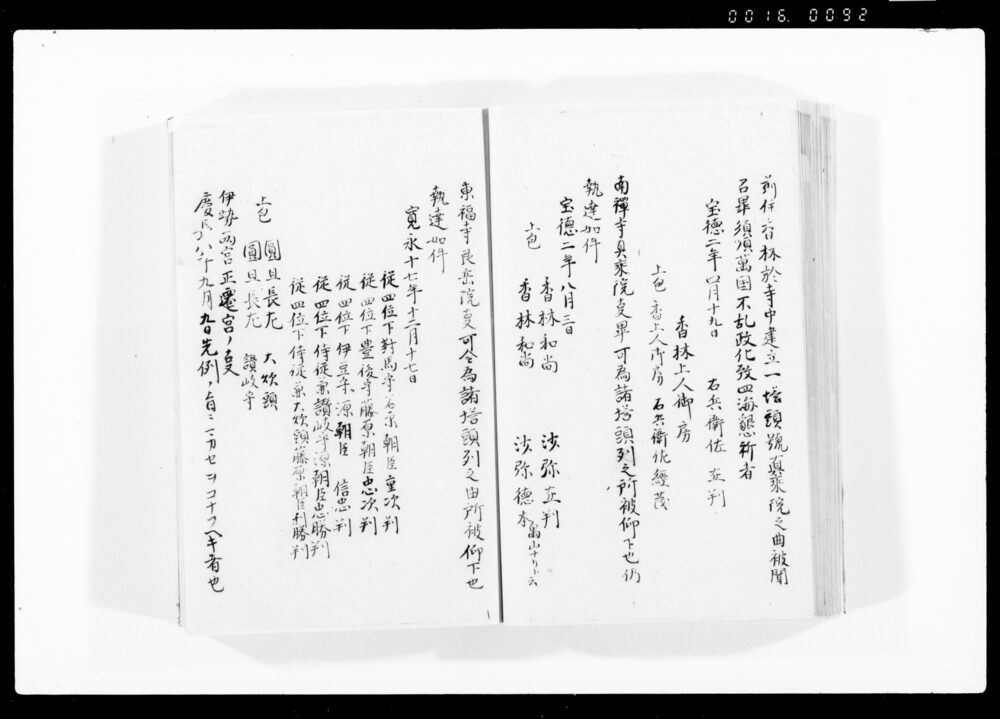 0016. 0092
前住香林於寺中建立一塔頭號真乗院之由被聞
召畢須順萬国不乱政化致四海懇祈者
宝徳二年四月十九日 右兵衛佐 在判
香林上人御房
上包 香上人御房 右兵衛佐經茂
南禪寺真乗院支畢可為諸塔頭列之所被仰下也仍
執達如件
宝徳二年八月三日 沙弥在判
香林和尚
上包 香林和尚 沙弥徳本 畠山ナリト云
東福寺良岳院支可令為諸塔頭列之由所被仰下也
執達如件
寛永十七年十二月十七日
従四位下對馬守 朝臣重次判
従四位下豊後守藤原朝臣忠次判
従四位下伊豆守源朝臣信忠判
従四位下侍従兼讃岐守源朝臣忠勝判
従四位下侍従兼大炊頭藤原朝臣利勝判
上包 圓旦長老 大炊頭
圓旦長老 讃岐守
伊勢両宮正遷宮ノ支
慶長 九月九日先例ノ 者也